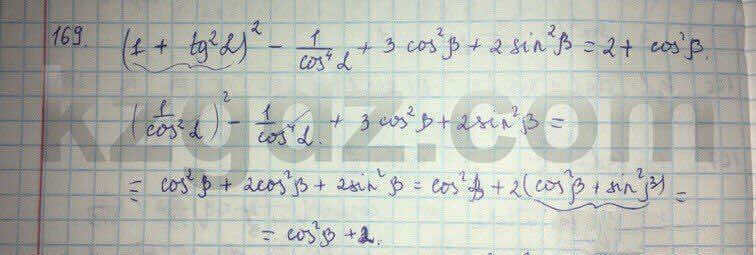 169. (1 + tg²α)² - 1/cos⁴α + 3 cos²β + 2 sin²β = 2 + cos²β.
(1/cos²α)² - 1/cos⁴α + 3 cos²β + 2 sin²β =
= cos²β + 2cos²β + 2sin²β = cos²β + 2(cos²β + sin²β) =
= cos²β + 2.
kzgdz.com